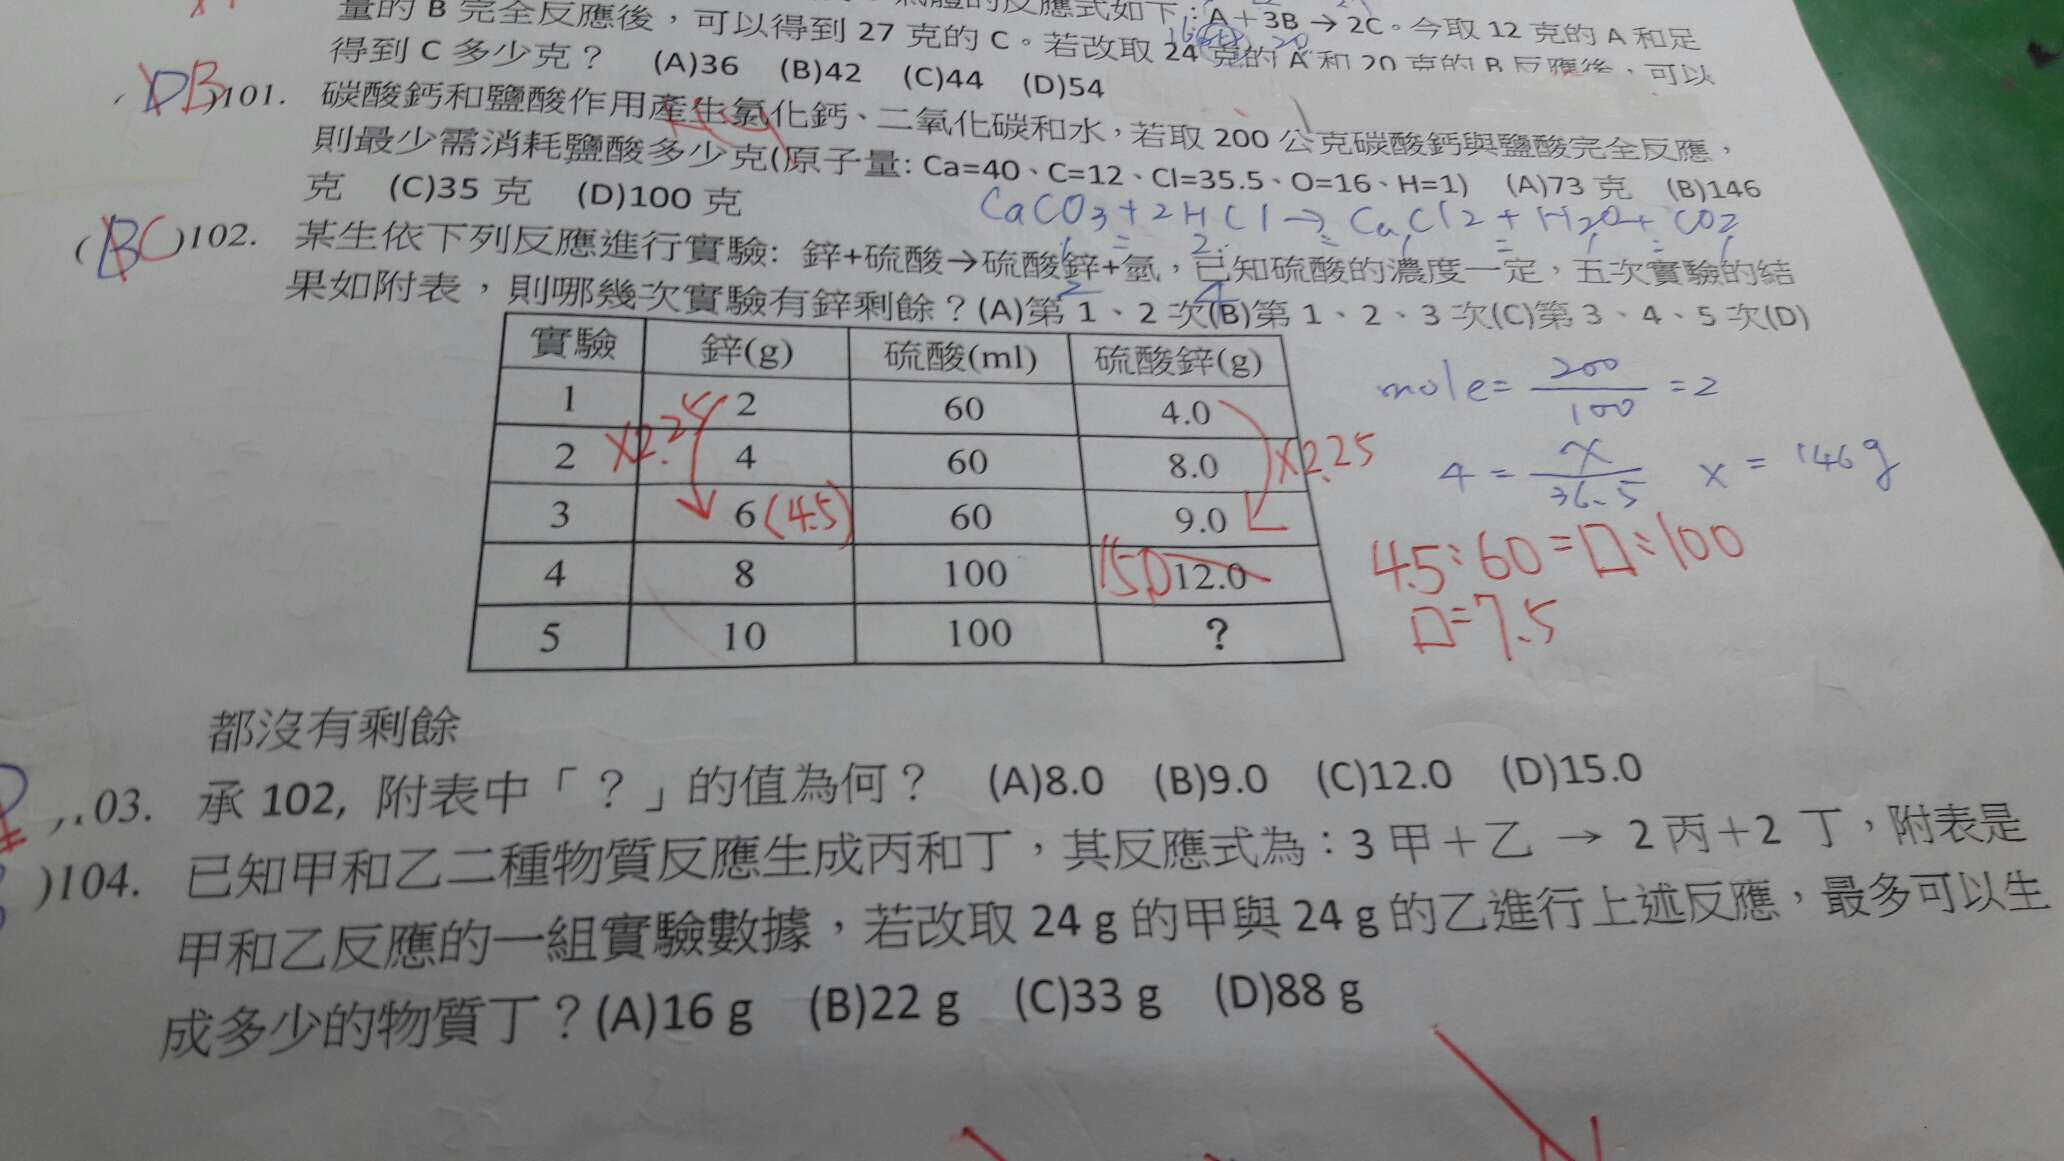 氣體的反應式如下：A＋3B → 2C。今取 12 克的 A 和足
量的 B 完全反應後，可以得到 27 克的 C。若改取 24 克的 A 和 20 克的 B 反應後，可以
得到 C 多少克？ (A)36 (B)42 (C)44 (D)54
DB)101. 碳酸鈣和鹽酸作用產生氯化鈣、二氧化碳和水，若取 200 公克碳酸鈣與鹽酸完全反應，
則最少需消耗鹽酸多少克(原子量: Ca=40、C=12、Cl=35.5、O=16、H=1) (A)73 克 (B)146
克 (C)35 克 (D)100 克
CaCO3+2HCl→CaCl2+H2O+CO2
(BC)102. 某生依下列反應進行實驗: 鋅+硫酸→硫酸鋅+氫，已知硫酸的濃度一定，五次實驗的結
果如附表，則哪幾次實驗有鋅剩餘？(A)第 1、2 次(B)第 1、2、3 次(C)第 3、4、5 次(D)
實驗 鋅(g) 硫酸(ml) 硫酸鋅(g)
1 2 60 4.0
2 4 60 8.0
3 6(4.5) 60 9.0
4 8 100 15.0 12.0
5 10 100 ?
×2.25
×2.25
mole= 200/100 =2
4 = x/36.5 x = 146g
4.5:60=□:100
□=7.5
都沒有剩餘
03. 承 102, 附表中「？」的值為何？ (A)8.0 (B)9.0 (C)12.0 (D)15.0
)104. 已知甲和乙二種物質反應生成丙和丁，其反應式為：3 甲＋乙 → 2 丙＋2 丁，附表是
甲和乙反應的一組實驗數據，若改取 24 g 的甲與 24 g 的乙進行上述反應，最多可以生
成多少的物質丁？(A)16 g (B)22 g (C)33 g (D)88 g